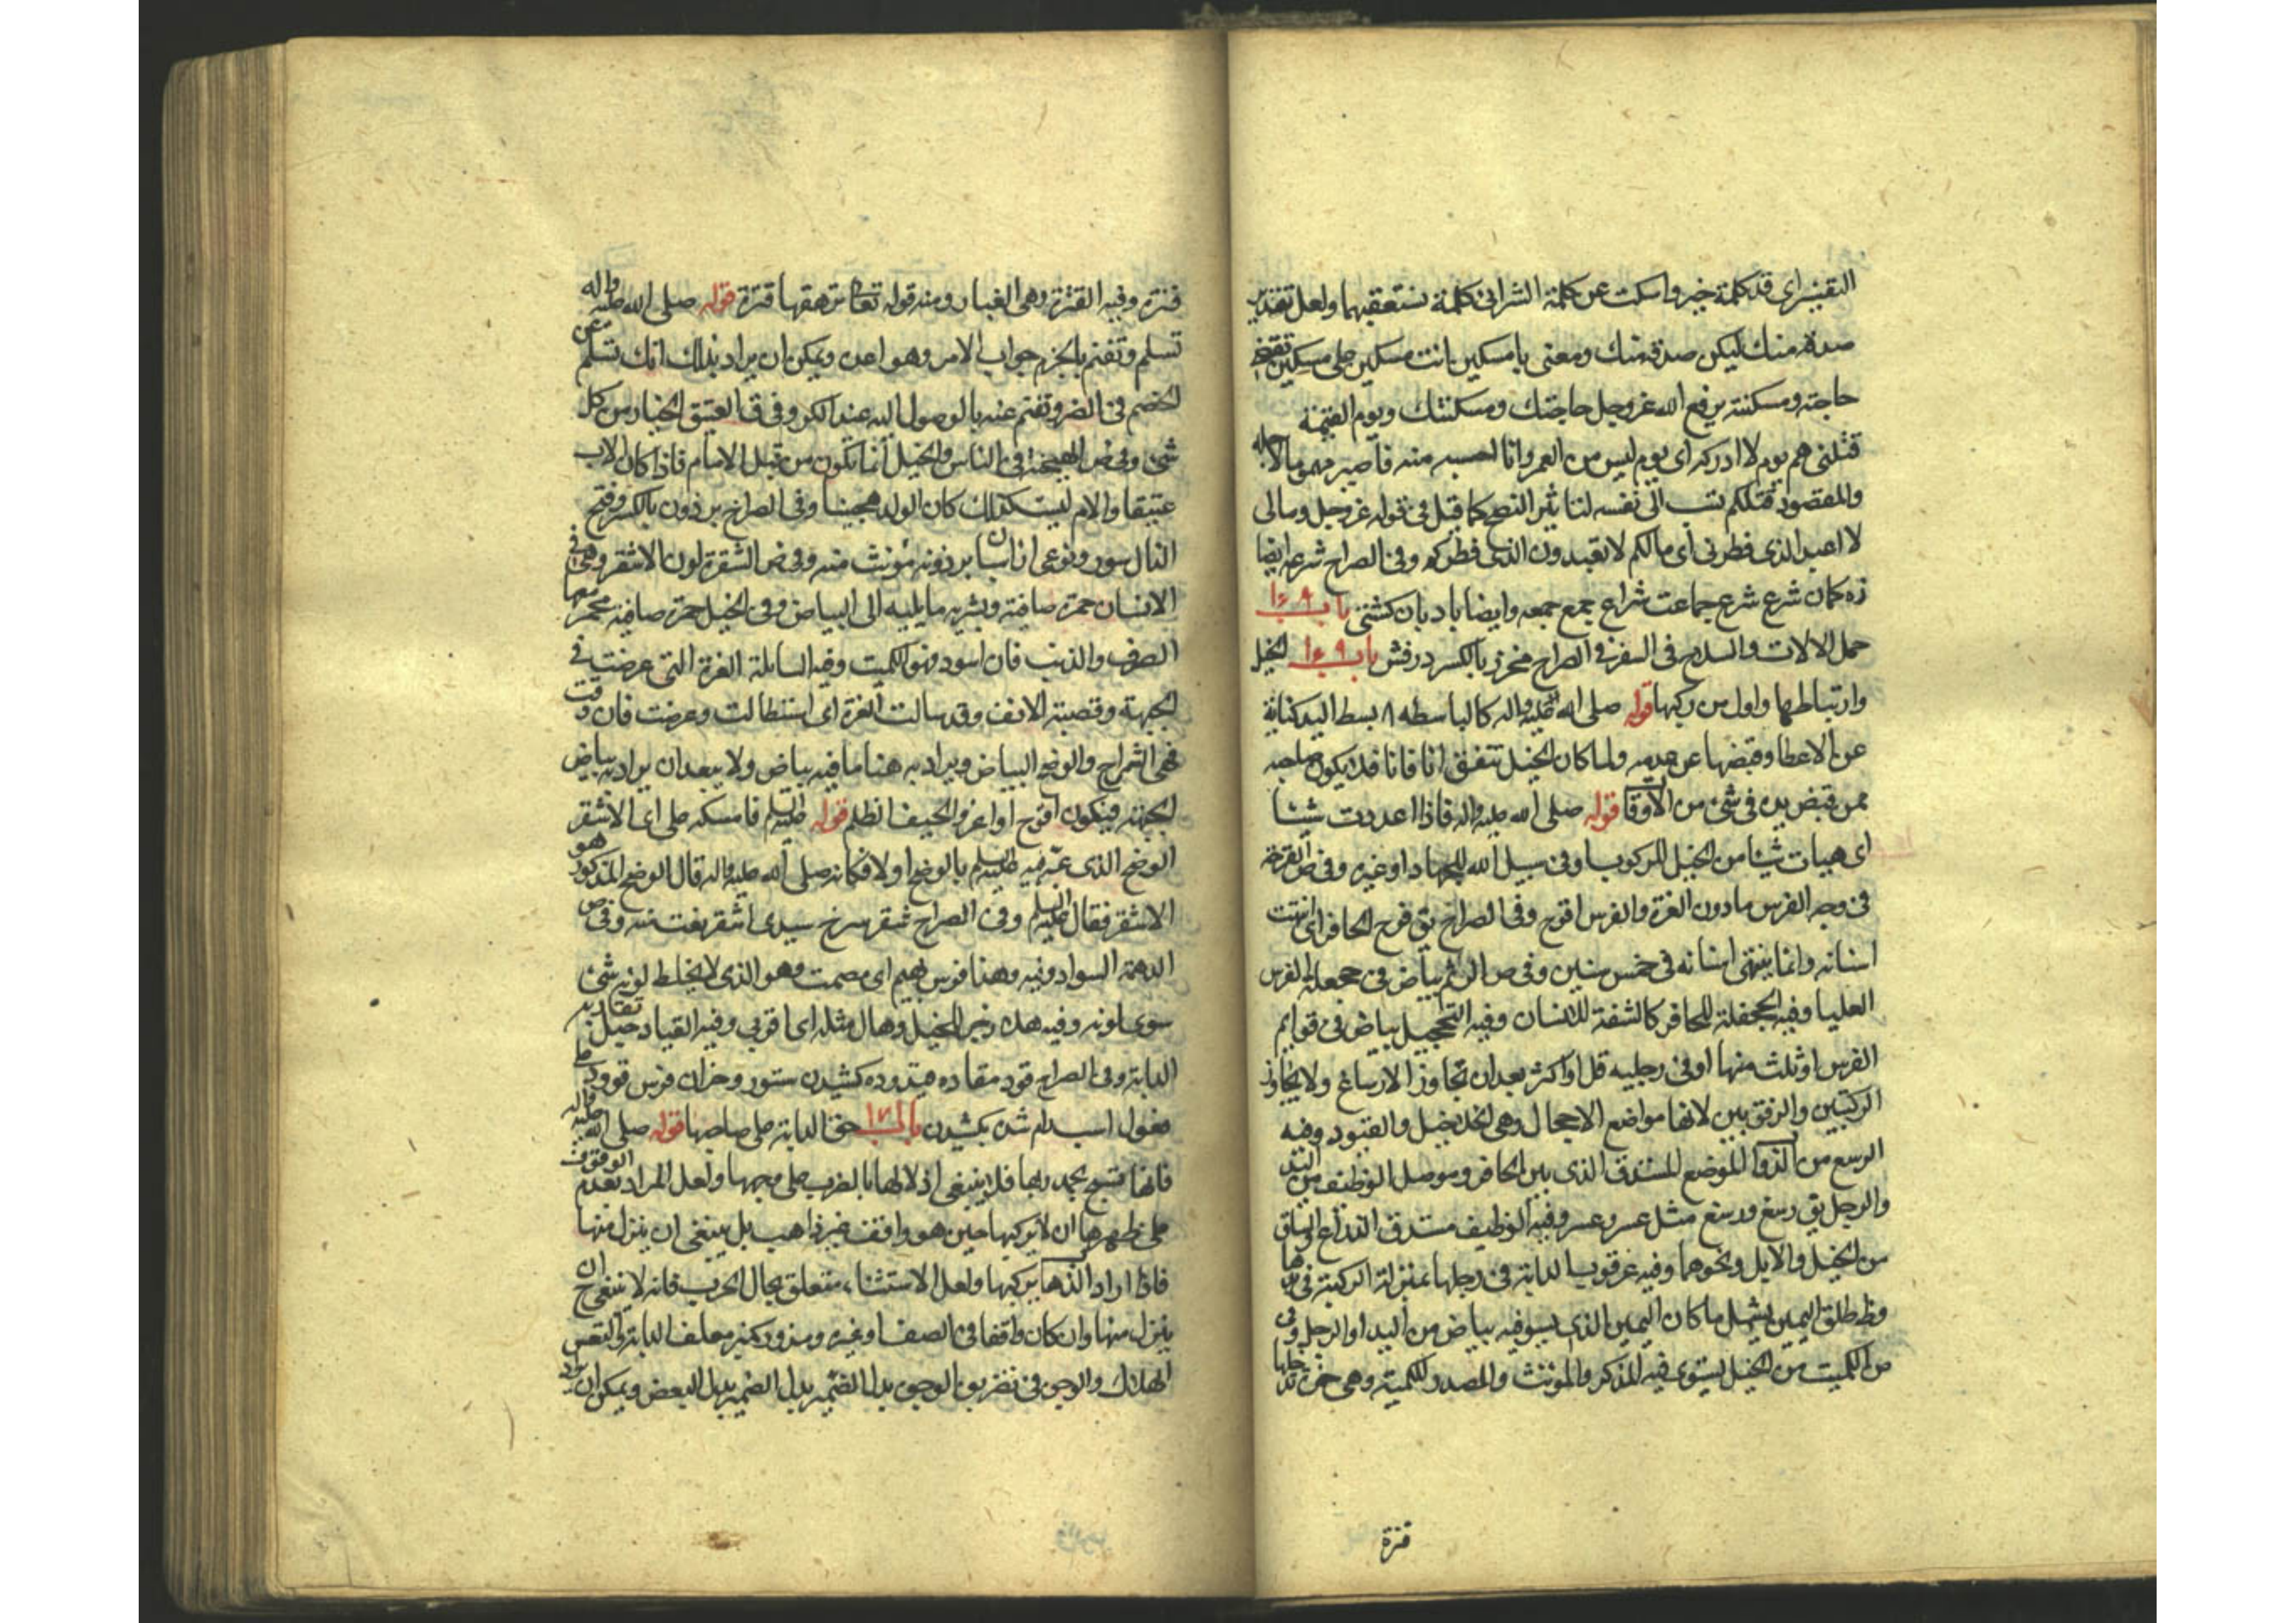 التفسير اى قد كلمة خير واسكت عن كلمة الشر اى كلمة نستعقبهما ولعل تقدير
صدقة منك ليكن صدقة منك ومعنى يا مسكين انت مسكين على مسكين
حاجته ومسكنته يرفع الله عز وجل حاجتك ومسكنتك ويوم القيمة
قتلنى هم يوم لا ادركه اى يوم ليس من العمر وانا فاصير
والمقصود قتلكم نسب الى نفسه لتاثير النصح كما قيل فى قوله عز وجل ومالى
لا اعبد الذى فطرنى اى مالكم لا تعبدون الذى فطركم وفى الصراح شرعه ايضا
زه كمان شرع شرع جماعت شراع جمع جمعه وايضا بادبان كشتى باب ١٦٩
حمل الالات والسلاح فى السفر فى الصراح مخرز بالكسر درفش باب الخيل
وارتباطها واول من ركبها قوله صلى الله عليه واله كالباسطه بسط اليد كناية
عن الاعطا وقبضها عن عدمه ولما كان الخيل تنفق انا فانا فلا يكون صاحبه
ممن قبض يده فى شئ من الاوقات قوله صلى الله عليه واله فاذا اعددت شيئا
اى هيات شيئا من الخيل للركوب او فى سبيل الله للجهاد او غيره وفى ص القرحة
فى وجه الفرس ما دون الغرة والفرس اقرح وفى الصراح يق قرح الحافر اى انتهت
اسنانه وانما ينتهى اسنانه فى خمس سنين وفى ص الرثم بياض فى جحفلة الفرس
العليا وفيه الجحفلة للحافر كالشفة للانسان وفيه التحجيل بياض فى قوايم
الفرس او ثلث منها او فى رجليه قل او اكثر بعد ان تجاوز الارساغ ولا يجاوز
الركبتين والرفقوبين لانها مواضع الاحجال وهى الخلاخيل والقيود وفيه
الرسغ من الدواب الموضع المستدق الذى بين الحافر وموصل الوظيف من اليد
والرجل يق رسغ ورسغ مثل عسر وعسر وفيه الوظيف مستدق الذراع والساق
من الخيل والابل ونحوهما وفيه عرقوب الدابة فى رجلها بمنزلة الركبة فى يدها
وظ طلق اليمين يشمل ما كان اليمين الذى بياض من اليد او الرجل وفى
ص الكميت من الخيل يستوى فيه المذكر والمونث والمصدر الكميتة وهى حمرة تدخلها
قترة
قترة وفيه القترة وهى الغبار ومنه قوله تعالى ترهقها قترة قوله صلى الله عليه واله
تسلم وتغنم بالجزم جواب الامر وهو اعدد ويمكن ان يراد بذلك انك تسلم عن
الخصم فى الفر وتغنم عنه بالوصول اليه عند الكر وفى ق العتيق الخيار من كل
شئ وفى ص الهجنة فى الناس والخيل انما تكون من قبل الام فاذا كان الاب
عتيقا والام ليست كذلك كان الولد هجينا وفى الصراح برذون بالكسر وفتح
الذال ستور ونوعى از اسپان برذونه مونث منه وفى ص الشقرة لون الاشقر وهى فى
الانسان حمرة صافية وبشرته مايلة الى البياض وفى الخيل حمرة صافية يحمر معها
العرف والذنب فان اسود فهو الكميت وفيه السايلة الغرة التى عرضت فى
الجبهة وقصبة الانف وقد سالت الغرة اى استطالت وعرضت فان دقت
فهى الشمراخ والوضح البياض ويراد به هنا ما فيه بياض ولا يبعد ان يراد به بياض
الجبهة فيكون اقرح او اغر قوله عليه السلم فامسكه على اى الاشقر
الوضح الذى عبر فيه عليه السلم بالوضح اولا فكانه صلى الله عليه واله قال الوضح المذكور هو
الاشقر فقال عليه السلم وفى الصراح شقر سرخ سپيدى اشقر نعت منه وفى ص
الدهمة السواد وفيه وهذا فرس بهيم اى مصمت وهو الذى لا يخلط لونه شئ
سوى لونه وفيه هلا زجر للخيل وهال مثله اى اقربى وفيه القياد حبل تقاد به
الدابة وفى الصراح قود مقاده قيدوده كشيدن ستور وخزان فرس قوود على
مفعول اسب رام شدن بكشيدن باب ١٧١ حق الدابة على صاحبها قوله صلى الله عليه واله
فانها تسبح بحمد ربها فلا ينبغى اذلالها بالضرب على وجهها ولعل المراد بعدم الوقوف
على ظهرها ان لا يركبها حين هو واقف غير ذاهب بل ينبغى ان ينزل منها
فاذا اراد الذهاب يركبها ولعل الاستثناء متعلق بحال الحرب فانه لا ينبغى ح ان
ينزل منها وان كان واقفا فى الصف او غيره ومذود كمنبر معلف الدابة والتعس
الهلاك والوجوه فى تضربوا الوجوه بدل الضمير بدل البعض ويمكن ان يراد